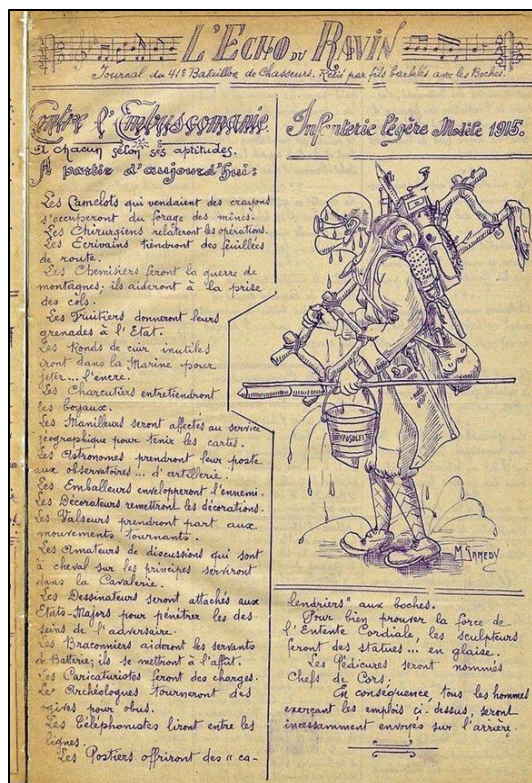 L'ECHO DU RAVIN
Journal du 41e Bataillon de Chasseurs. Relié par fils barbelés avec les Boches.
Contre l'Embuscomanie.
A chacun selon ses aptitudes.
A partir d'aujourd'hui:
Les Camelots qui vendaient des crayons
s'occuperont du forage des mines.
Les Chirurgiens relateront les opérations.
Les Ecrivains tiendront des feuillées
de route.
Les Chemisiers feront la guerre de
montagnes; ils aideront à la prise
des cols.
Les Fruitiers donneront leurs
grenades à l'Etat.
Les Ronds de cuir inutiles
iront dans la Marine pour
jeter... l'encre.
Les Charcutiers entretiendront
les boyaux.
Les Manilleurs seront affectés au service
géographique pour tenir les cartes.
Les Astronomes prendront leur poste
aux observatoires... d'artillerie.
Les Emballeurs envelopperont l'ennemi.
Les Décorateurs remettront les décorations.
Les Valseurs prendront part aux
mouvements tournants.
Les Amateurs de discussions qui sont
à cheval sur les principes serviront
dans la Cavalerie.
Les Dessinateurs seront attachés aux
Etats-Majors pour pénétrer les des
seins de l'adversaire.
Les Braconniers aideront les servants
de Batterie; ils se mettront à l'affût.
Les Caricaturistes feront des charges.
Les Archéologues tourneront des
ogives pour obus.
Les Téléphonistes liront entre les
lignes.
Les Postiers offriront des "ca-
Infanterie légère Modèle 1915.
HYPOSULFITE
M SAMEDY
lendriers" aux boches.
Pour bien prouver la force de
l'Entente Cordiale, les sculpteurs
feront des statues... en glaise.
Les Pédicures seront nommés
Chefs de Cors.
En conséquence, tous les hommes
exerçant les emplois ci-dessus, seront
incessamment envoyés sur l'arrière.